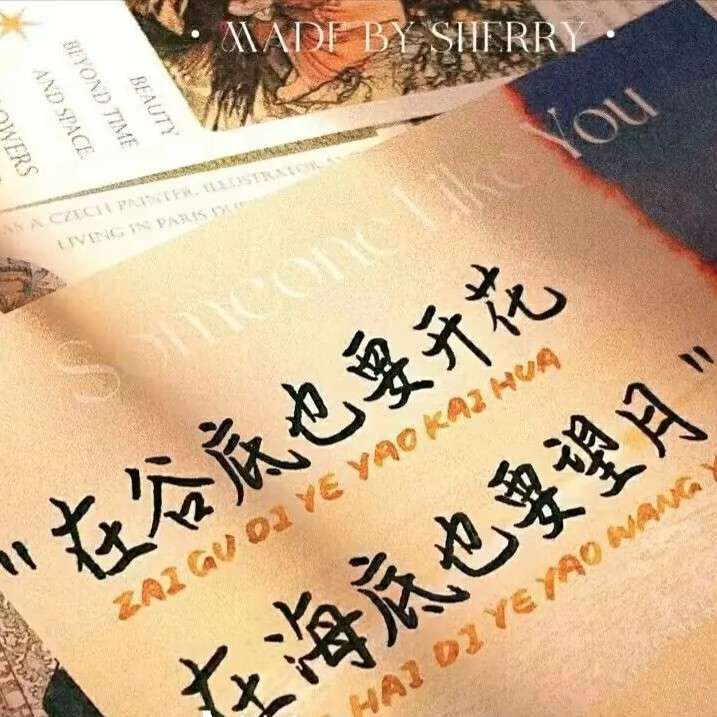 • MADE BY SHERRY •
BEAUTY
BEYOND TIME
AND SPACE
AS A CZECH PAINTER, ILLUSTRATOR
LIVING IN PARIS
Someone Like You
"在谷底也要开花
ZAI GU DI YE YAO KAI HUA
在海底也要望月"
HAI DI YE YAO WANG